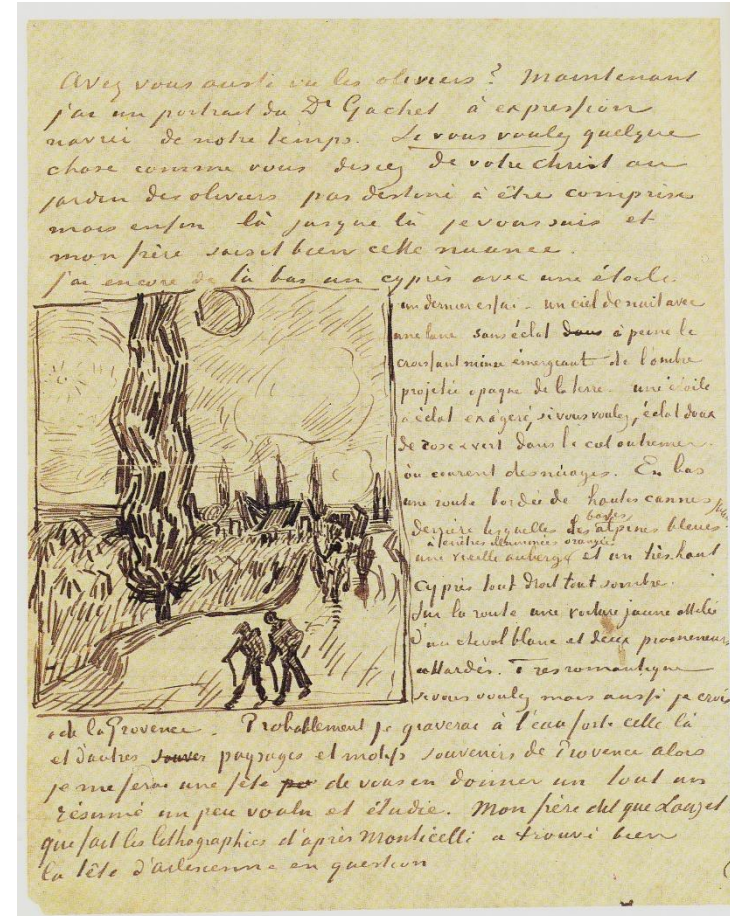 Avez vous aussi vu les oliviers? Maintenant
j'ai un portrait du Dr Gachet à expression
navrée de notre temps. Si vous voulez quelque
chose comme vous disiez de votre Christ au
jardin des oliviers pas destiné à être comprise
mais enfin là jusque là je vous suis et
mon frère saisit bien cette nuance.
j'ai encore de là bas un cyprès avec une étoile.
un dernier essai – un ciel de nuit avec
une lune sans éclat à peine le
croissant mince émergeant de l'ombre
projetée opaque de la terre – une étoile
à éclat exagéré, si vous voulez, éclat doux
de rose & vert dans le ciel outremer
où courent des nuages. En bas
une route bordée de hautes cannes
derrière lesquelles les basses alpines bleues
à fenêtres illuminées orangé
une vieille auberge et un très haut
cyprès tout droit tout sombre.
Sur la route une voiture jaune attelée
d'un cheval blanc et deux promeneurs
attardés. Très romantique
si vous voulez mais aussi je crois
de la Provence. Probablement je graverai à l'eau forte celle là
et d'autres paysages et motifs souvenirs de Provence alors
je me ferai une fête de vous en donner un tout un
résumé un peu voulu et étudié. Mon frère dit que Lauzet
qui fait les lithographies d'après Monticelli a trouvé bien
la tête d'arlesienne en question